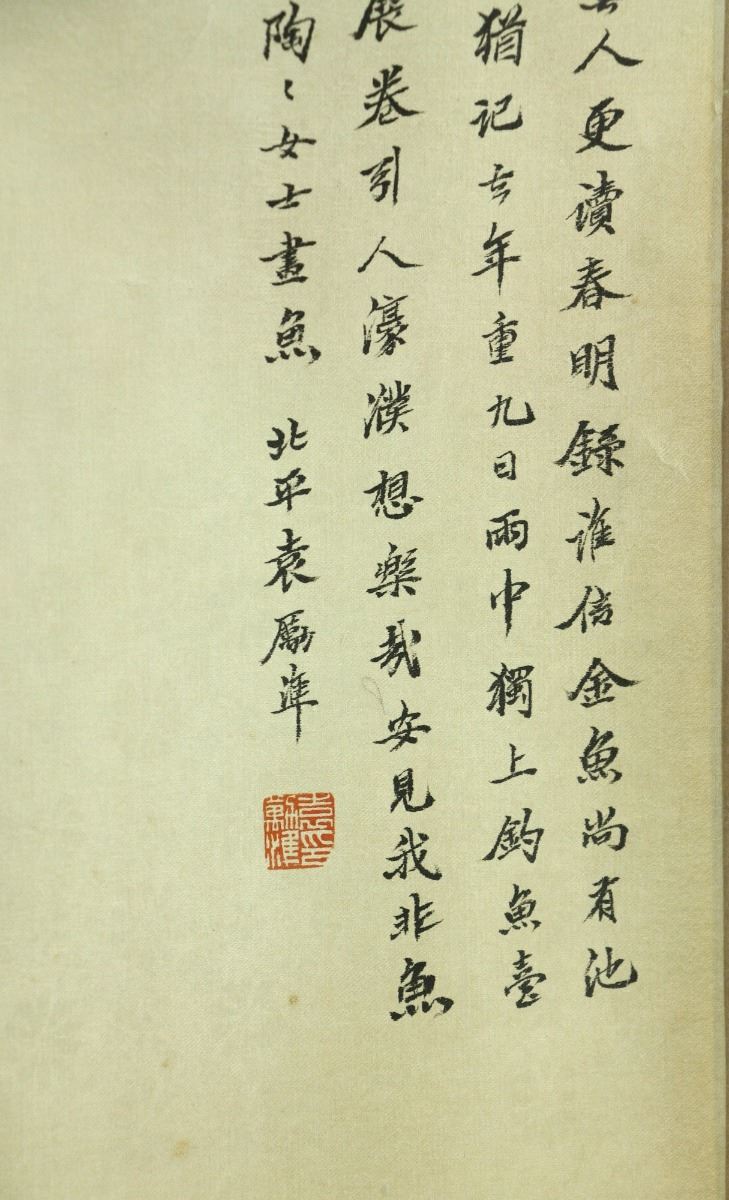 人更讀春明錄誰信金魚尚有池
猶記去年重九日雨中獨上釣魚臺
展卷引人濠濮想樂哉安見我非魚
陶〻女士畫魚 北平袁勵準
袁印
勵準